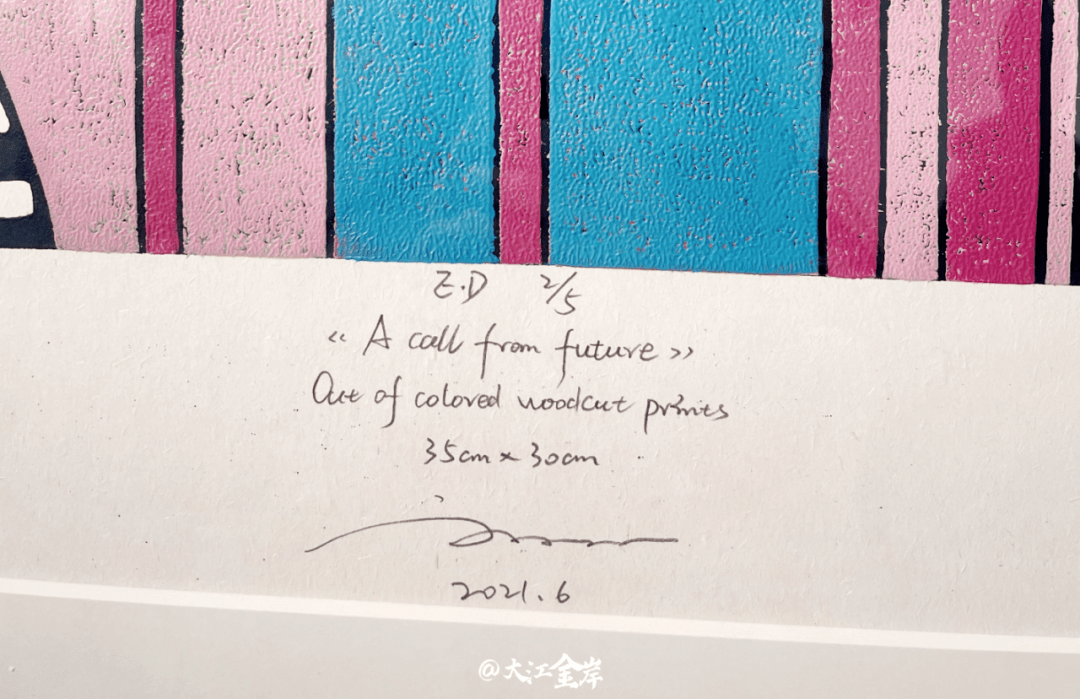 E.D 2/5
《A call from future》
Out of colored woodcut prints
35cm×30cm
2021.6
@大江金岸